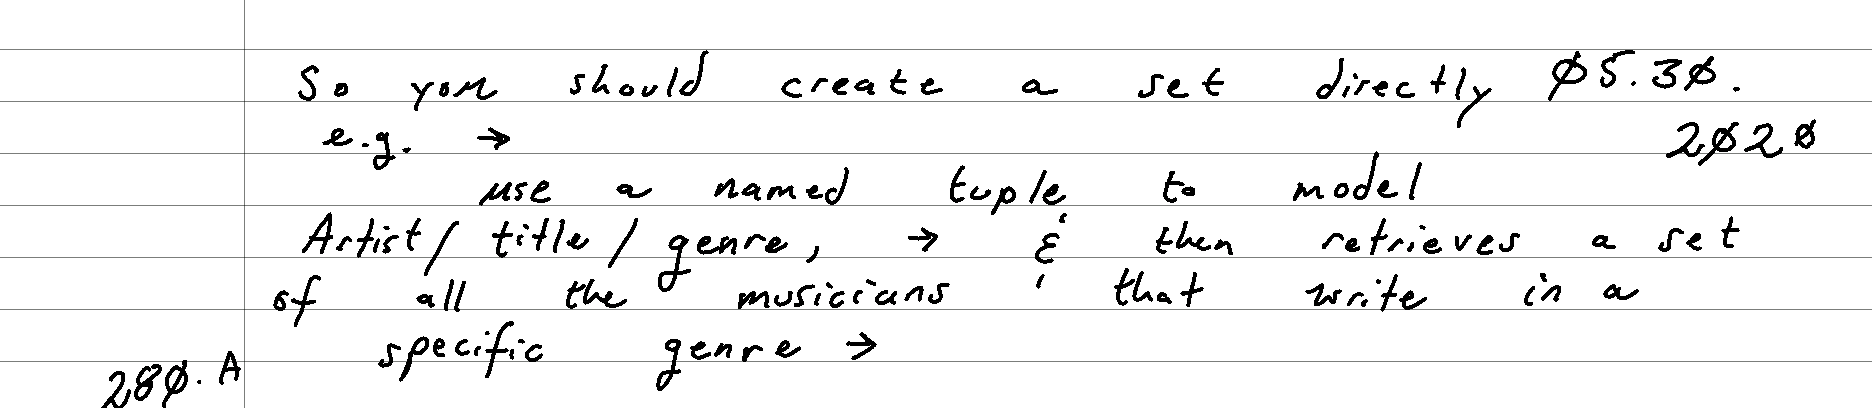 So you should create a set directly Ø5.3Ø.
e.g. → 2Ø2Ø
use a named tuple to model
Artist/ title / genre, → & then retrieves a set
of all the musicians that write in a
specific genre →
28Ø. A